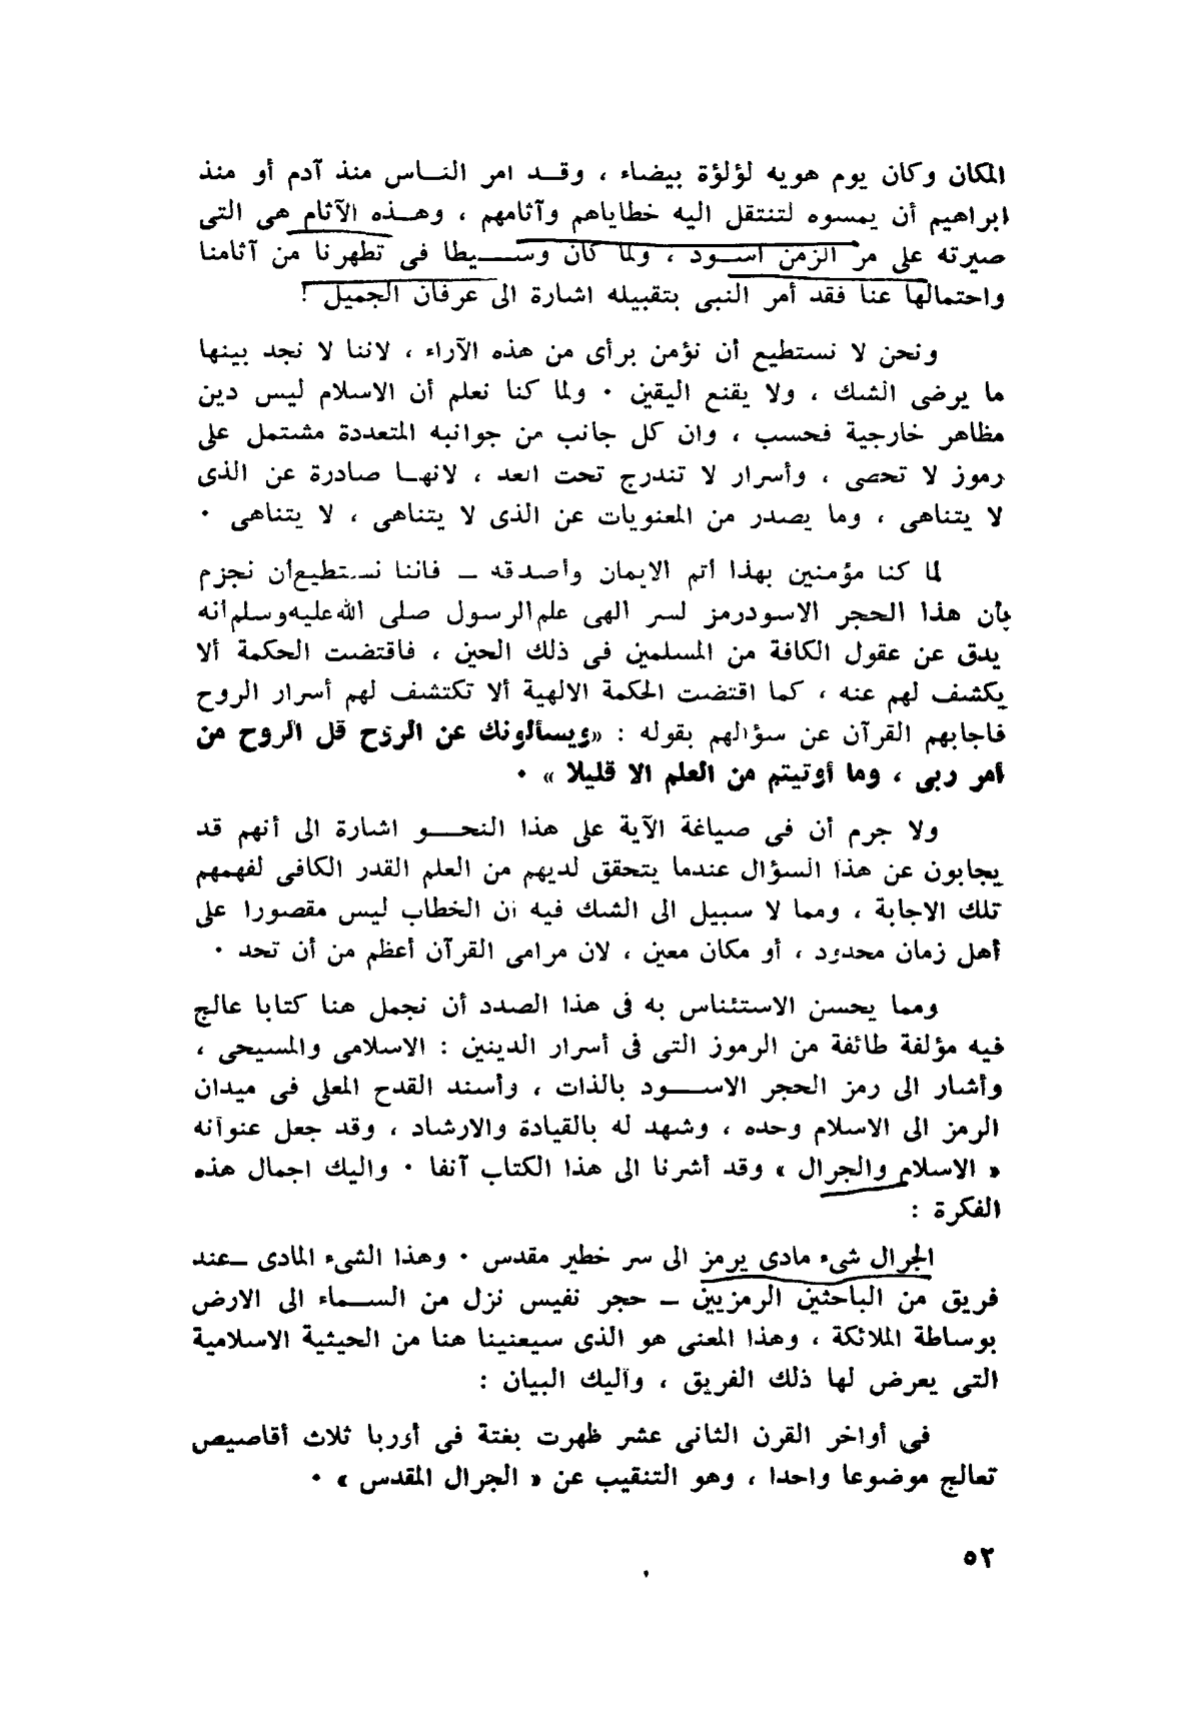 المكان وكان يوم هويه لؤلؤة بيضاء ، وقـد امر النـاس منذ آدم أو منذ
ابراهيم أن يمسوه لتنتقل اليه خطاياهم وآثامهم ، وهـذه الآثام هى التى
صيرته على مر الزمن أسـود ، ولما كان وسـيطا فى تطهرنا من آثامنا
واحتمالها عنا فقد أمر النبى بتقبيله اشارة الى عرفان الجميل !
ونحن لا نستطيع أن نؤمن برأى من هذه الآراء ، لاننا لا نجد بينها
ما يرضى الشك ، ولا يقنع اليقين ٠ ولما كنا نعلم أن الاسلام ليس دين
مظاهر خارجية فحسب ، وان كل جانب من جوانبه المتعددة مشتمل على
رموز لا تحصى ، وأسرار لا تندرج تحت العد ، لانهـا صادرة عن الذى
لا يتناهى ، وما يصدر من المعنويات عن الذى لا يتناهى ، لا يتناهى ٠
لما كنا مؤمنين بهذا أتم الايمان وأصدقه – فاننا نستطيع أن نجزم
بأن هذا الحجر الاسود رمز لسر الهى علم الرسول صلى الله عليه وسلم أنه
يدق عن عقول الكافة من المسلمين فى ذلك الحين ، فاقتضت الحكمة ألا
يكشف لهم عنه ، كما اقتضت الحكمة الالهية ألا تكتشف لهم أسرار الروح
فاجابهم القرآن عن سؤالهم بقوله : «ويسألونك عن الروح قل الروح من
أمر ربى ، وما أوتيتم من العلم الا قليلا » ٠
ولا جرم أن فى صياغة الآية على هذا النحـو اشارة الى أنهم قد
يجابون عن هذا السؤال عندما يتحقق لديهم من العلم القدر الكافى لفهمهم
تلك الاجابة ، ومما لا سبيل الى الشك فيه أن الخطاب ليس مقصورا على
أهل زمان محدود ، أو مكان معين ، لان مرامى القرآن أعظم من أن تحد ٠
ومما يحسن الاستئناس به فى هذا الصدد أن نجمل هنا كتابا عالج
فيه مؤلفة طائفة من الرموز التى فى أسرار الدينين : الاسلامى والمسيحى ،
وأشار الى رمز الحجر الاسـود بالذات ، وأسند القدح المعلى فى ميدان
الرمز الى الاسلام وحده ، وشهد له بالقيادة والارشاد ، وقد جعل عنوانه
« الاسلام والجرال » وقد أشرنا الى هذا الكتاب آنفا ٠ واليك اجمال هذه
الفكرة :
الجرال شىء مادى يرمز الى سر خطير مقدس ٠ وهذا الشىء المادى – عند
فريق من الباحثين الرمزيين – حجر نفيس نزل من السـماء الى الارض
بوساطة الملائكة ، وهذا المعنى هو الذى سيعنينا هنا من الحيثية الاسلامية
التى يعرض لها ذلك الفريق ، واليك البيان :
فى أواخر القرن الثانى عشر ظهرت بغتة فى أوربا ثلاث أقاصيص
تعالج موضوعا واحدا ، وهو التنقيب عن « الجرال المقدس » ٠
٥٢